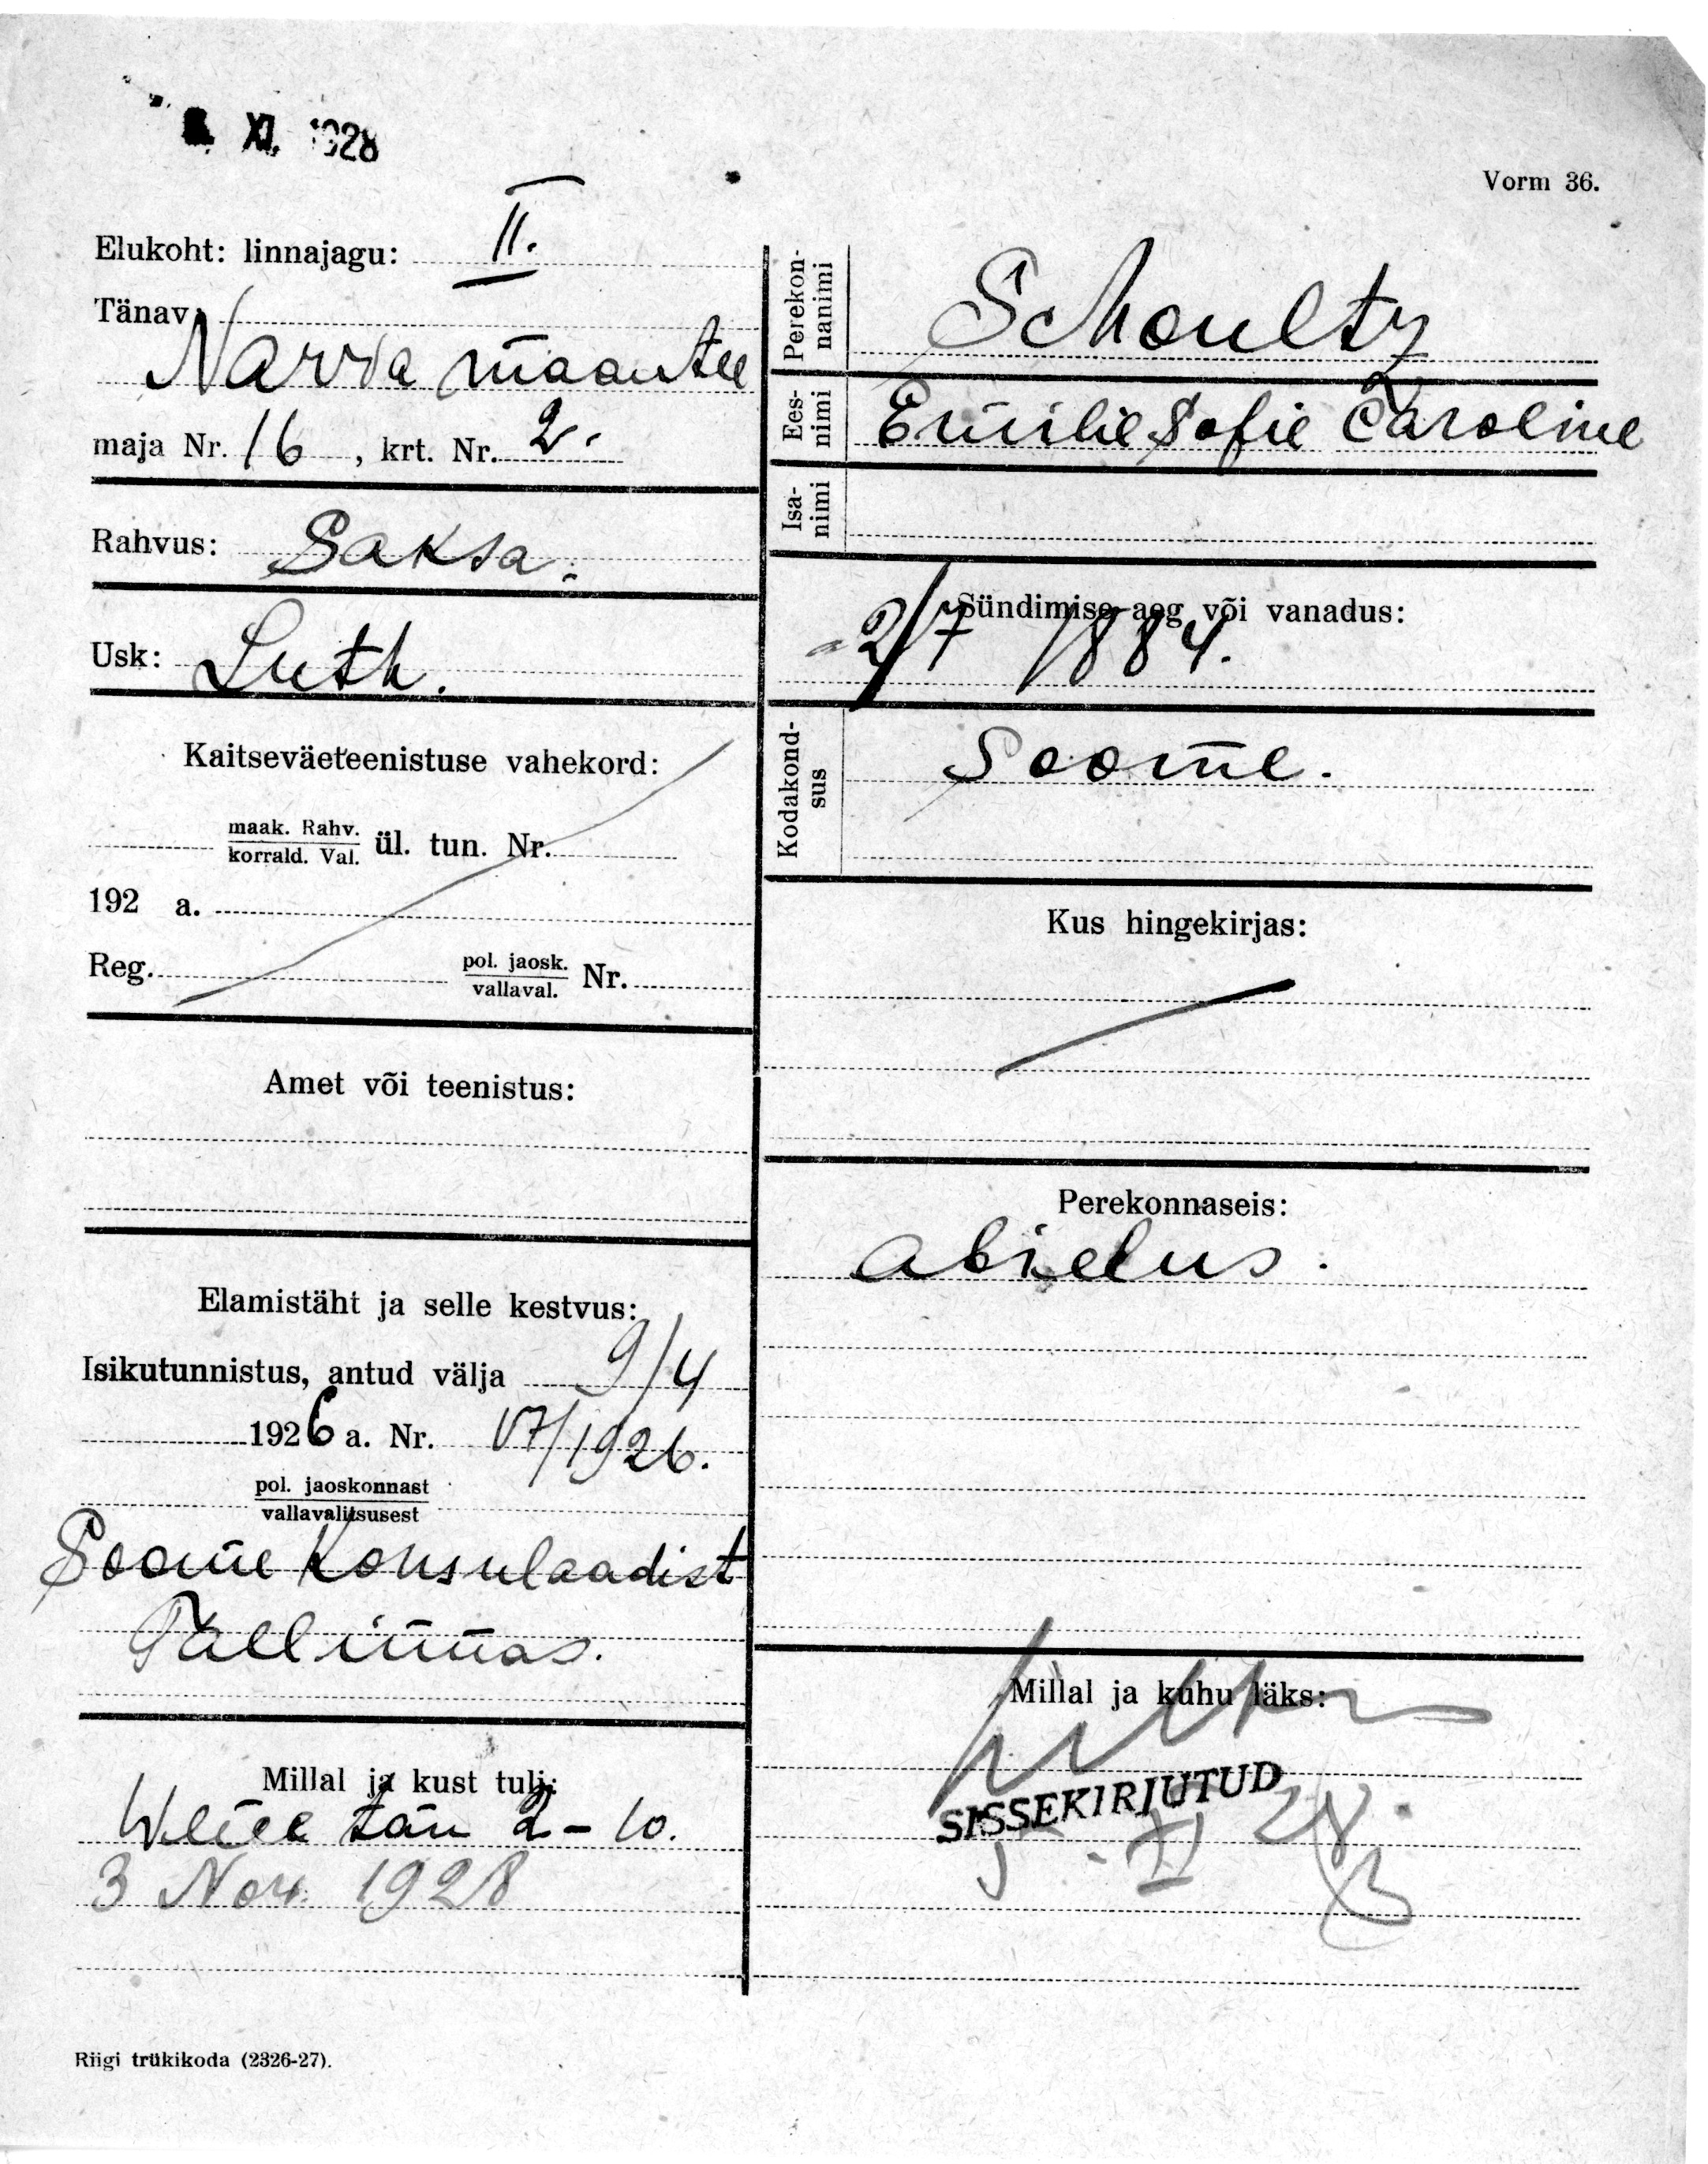 XI. 1928
Vorm 36.
Elukoht: linnajagu: II.
Tänav:
Narva maantee
maja Nr. 16, krt. Nr. 2.
Rahvus: Saksa.
Usk: Luth.
Kaitseväeteenistuse vahekord:
maak. Rahv.
korrald. Val. ül. tun. Nr.
192 a.
Reg. pol. jaosk.
vallaval. Nr.
Amet või teenistus:
Elamistäht ja selle kestvus:
Isikutunnistus, antud välja 9/4
1926 a. Nr. 17/1926.
pol. jaoskonnast
vallavalitsusest
Soome Konsulaadist
Tallinnas.
Millal ja kust tuli:
tän 2-10.
3 Nov. 1928
Riigi trükikoda (2326-27).
Perekon-
nanimi
Schoultz
Ees-
nimi
Emilie Sofie Caroline
Isa-
nimi
Sündimise aeg või vanadus:
2/7 1884.
Kodakond-
sus
Soome.
Kus hingekirjas:
Perekonnaseis:
abielus.
Millal ja kuhu läks:
SISSEKIRJUTUD
XI 28.